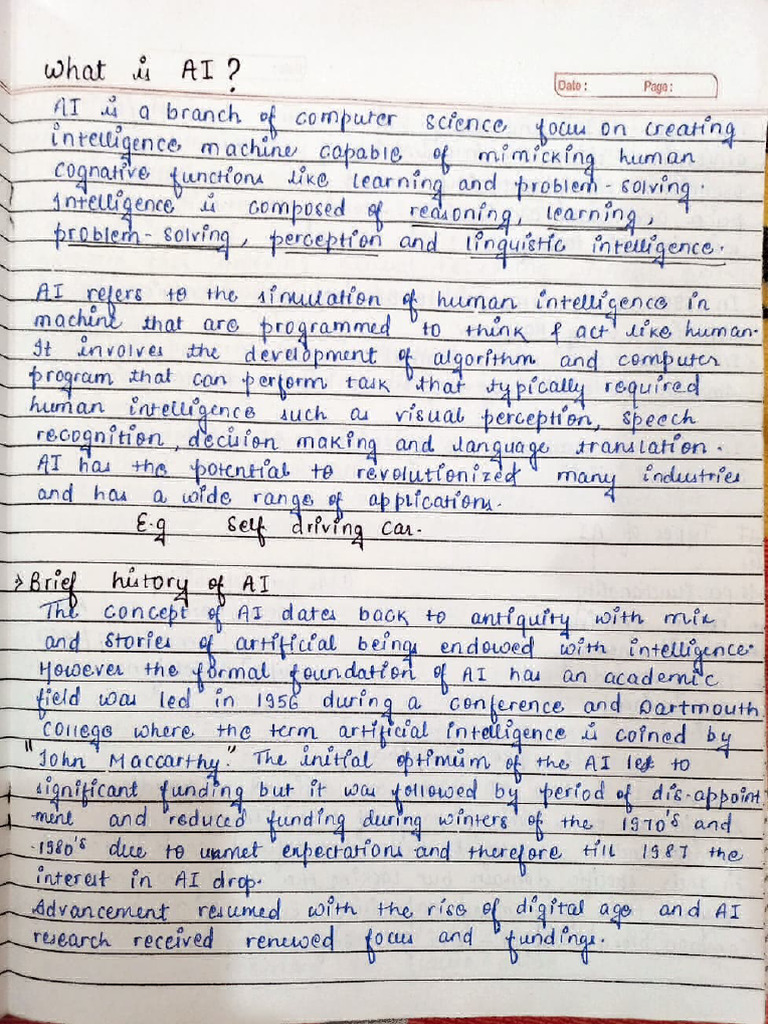 What is AI?
Date: Page:
AI is a branch of computer science focus on creating
intelligence machine capable of mimicking human
cognative functions like learning and problem-solving.
Intelligence is composed of reasoning, learning,
problem-solving, perception and linguistic intelligence.
AI refers to the simulation of human intelligence in
machine that are programmed to think & act like human.
It involves the development of algorithm and computer
program that can perform task that typically required
human intelligence such as visual perception, speech
recognition, decision making and language translation.
AI has the potential to revolutionized many industries
and has a wide range of applications.
E.g Self driving car.
→ Brief history of AI
The concept of AI dates back to antiquity with mix
and stories of artificial beings endowed with intelligence.
However the formal foundation of AI has an academic
field was led in 1956 during a conference and Dartmouth
College where the term artificial intelligence is coined by
"John Maccarthy." The initial optimum of the AI led to
significant funding but it was followed by period of dis-appoint
-ment and reduced funding during winters of the 1970's and
1980's due to unmet expectations and therefore till 1987 the
interest in AI drop.
Advancement resumed with the rise of digital age and AI
research received renewed focus and fundings.